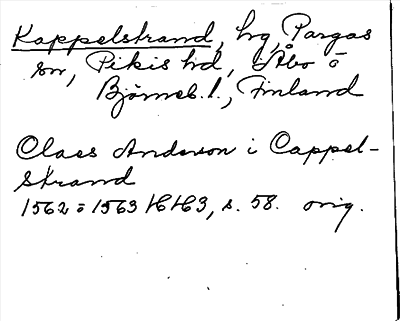 Kappelstrand, hg, Pargas
sn, Pikis hd, Åbo o
Björneb. l., Finland
Claes Anderson i Cappel-
strand
1562 o 1563 HH3, s. 58. orig.